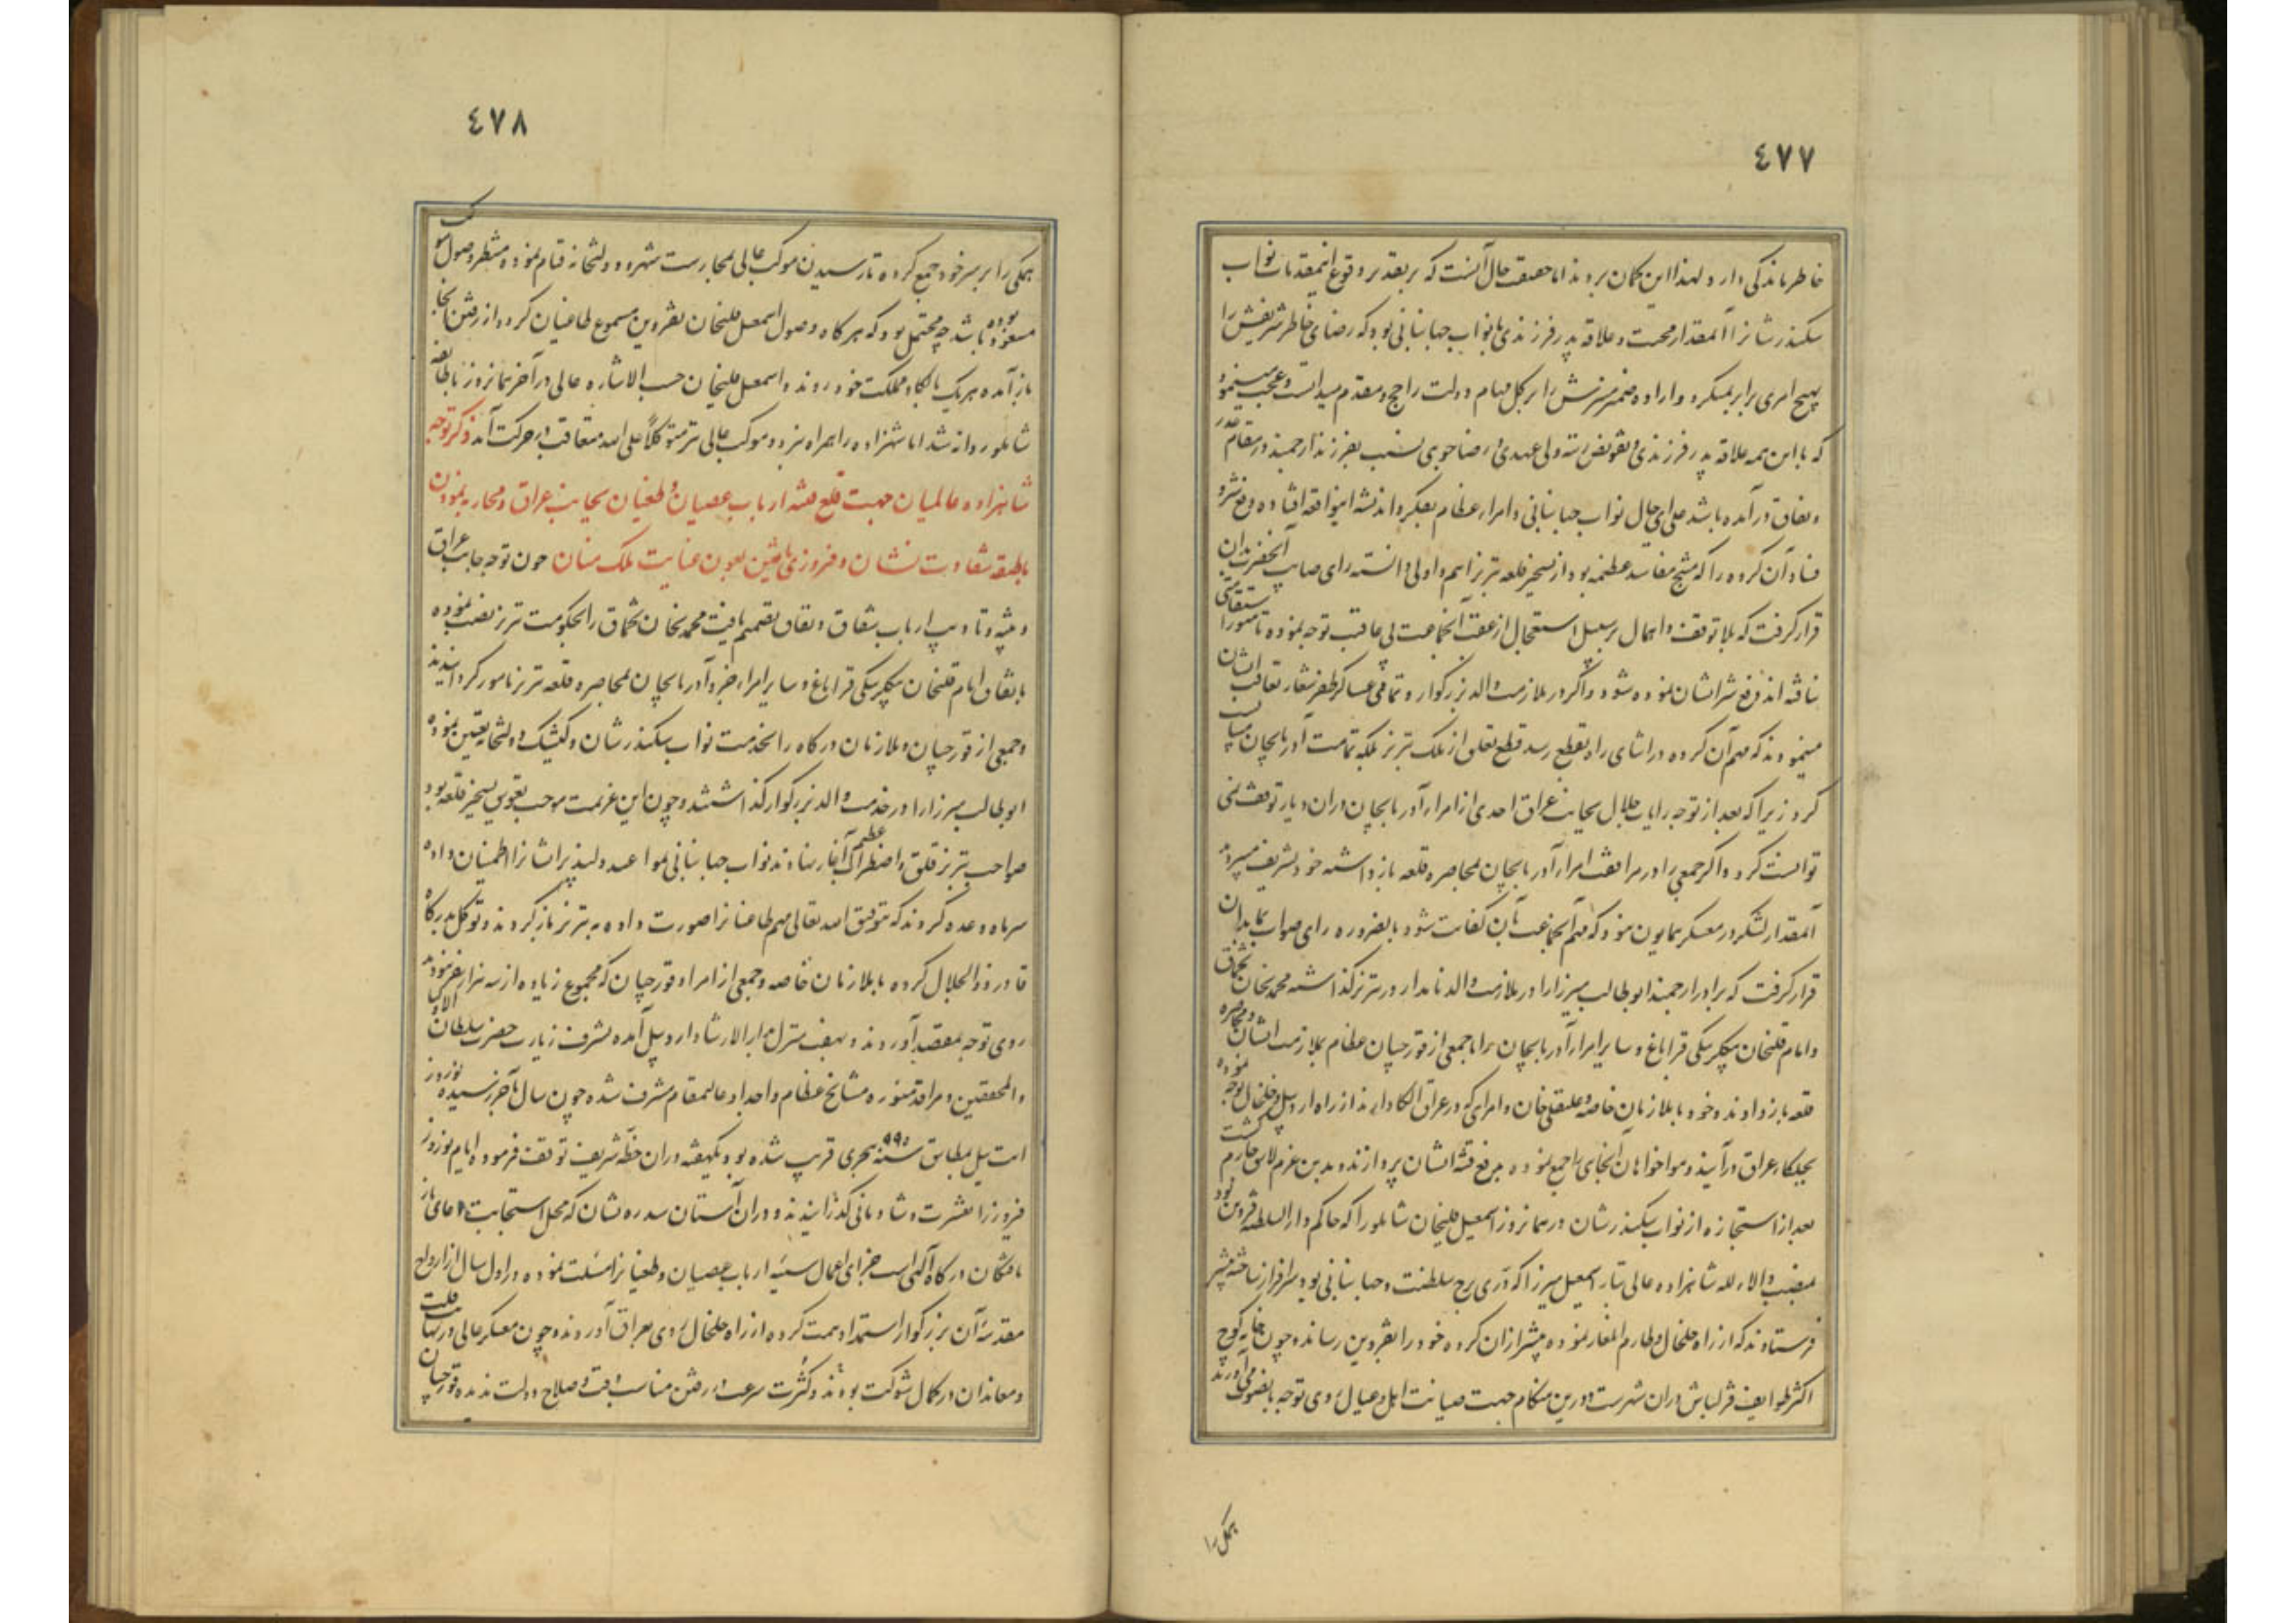 ٤٧٧
خاطر ماندگی دارد لهذا این گمان بردند اما حقیقت حال آنست که بر تقدیر وقوع اینمقدمات نواب
سکندرشانرا آنمقدار محبت و علاقه پدر فرزندی با نواب جهانبانی بود که رضای خاطر شریفش را
بهیچ امری برابر نمیکرد و اراده ضمیر منیرش را بر کل مهام دولت راجح و مقدم میدانست و عجب مینمود
که با این همه علاقه پدر فرزندی و تفویض رتبه ولی عهدی و رضاجوی نسبت بفرزند ارجمند در مقام غدر
و نفاق درآمده باشد علی ای حال نواب جهانبانی و امراء عظام بفکر و اندیشه اینواقعه افتاده دفع شر و
فساد آن گروه را که منتج مفاسد عظیمه بود از تسخیر قلعه تبریز اهم و اولی دانسته رای صایب آنحضرت بدان
قرار گرفت که بلا توقف و اهمال بر سبیل استعجال از عقب آنجماعت بی عاقبت توجه نموده تا استقامتی
نیافته اند دفع شر ایشان نموده شود و اگر در ملازمت والد بزرگوار و تمامی عساکر ظفر شعار تعاقب ایشان
مینمودند که مهم آن گروه در اثنای راه بقطع رسد قطع تعلق از ملک تبریز بلکه تمامت آذربایجان میبایست
کرد زیرا که بعد از توجه رایات جلال بجانب عراق احدی از امراء آذربایجان در آن دیار توقف نمی
توانست کرد و اگر جمعی را در مرافقت امراء آذربایجان بمحاصره قلعه بازداشته خود تشریف میبردند
آنمقدار لشکر در معسکر همایون نبود که مهم آنجماعت بآن کفایت شود بالضروره رای صواب نما بدان
قرار گرفت که برادر ارجمند ابوطالب میرزا را در ملازمت والد نامدار در تبریز گذاشته محمد خان تخماق
و امام قلیخان بیگلربیگی قراباغ و سایر امراء آذربایجان را با جمعی از قورچیان عظام بملازمت ایشان و محاصره
قلعه بازدادند و خود با ملازمان خاصه و علیقلی خان و امرای که در عراق الکا دارند از راه اردبیل و خلخال توجه نموده
بجلگاء عراق درآیند و هواخواهان آنجای را جمع نموده برفع فتنه ایشان پردازند و بدین عزم لایق جازم گشت
بعد از استجازه از نواب سکندرشان در همانروز اسمعیل قلیخان شاملو را که حاکم دارالسلطنه قزوین بود
بمنصب والاء لله شاهزاده عالی تبار اسمعیل میرزا که دری برج سلطنت و جهانبانی بود سرافراز ساخته پیشتر
فرستادند که از راه خلخال و طارم ایلغار نموده پیشتر از آن گروه خود را بقزوین رسانده چون خانه کوچ
اکثر طوایف قزلباش در آن شهرست و درین هنگام جهت صیانت اهل و عیال روی توجه بآنصوب می آورند
همگی را
٤٧٨
همگی را بر سر خود جمع کرده تا رسیدن موکب عالی بمحارست شهر و دولتخانه قیام نموده منتظر وصول موکب
مسعود بوده باشد چه محتمل بود که هر گاه وصول اسمعیل قلیخان بقزوین مسموع طاغیان گردد از رفتن آنجا
بازآمده هر یک بالکاء و مملکت خود روند و اسمعیل قلیخان حسب الاشاره عالی در آخر همانروز با طایفه
شاملو روانه شد اما شهزاده را همراه نبرد و موکب عالی نیز متوکلا علی الله متعاقب در حرکت آمد ذکر توجه
شاهزاده عالمیان جهت قلع فتنه ارباب عصیان و طغیان بجانب عراق و محاربه نمودن
با طبقه شقاوت نشان و فیروزی یافتن بعون عنایت ملک منان چون توجه جانب عراق
و تنبیه و تادیب ارباب شقاق و نفاق تصمیم یافت محمد خان تخماق را بحکومت تبریز نصب نموده
باتفاق امام قلیخان بیگلربیگی قراباغ و سایر امراء خیر و آذربایجان بمحاصره قلعه تبریز مامور گردانیدند
و جمعی از قورچیان و ملازمان درگاه را بخدمت نواب سکندرشان و کشیک دولتخانه تعیین نموده
ابوطالب میرزا را در خدمت والد بزرگوار گذاشتند و چون این عزیمت موجب تعویق تسخیر قلعه بود
صواحب تبریز قلق و اضطراب عظیم آغاز نهادند نواب جهانبانی بمواعید دلپذیر ایشانرا اطمینان داده
سر ماه وعده کردند که بتوفیق الله تعالی مهم طاغیانرا صورت داده به تبریز بازگردند و توکل بدرگاه
قادر ذوالجلال کرده با ملازمان خاصه و جمعی از امراء و قورچیان که مجموع زیاده از سه هزار نفر نبودند
روی توجه بمقصد آوردند و بهفت منزل بدارالارشاد اردبیل آمده بشرف زیارت حضرت سلطان الاولیا
والمحققین و مراقد منوره مشایخ عظام و اجداد عالیمقام مشرف شده چون سال بآخر رسیده نوروز
ایت ئیل مطابق سنه ٩٩٥ هجری قریب شده بود یکهفته در آن خطه شریف توقف فرموده ایام نوروز
فیروز را بعشرت و شادمانی گذرانیدند و در آن آستان سدره نشان که محل استجابت دعای نیاز
مافتگان درگاه الهی است جزای اعمال سیئه ارباب عصیان و طغیانرا مسئلت نموده در اول سال از ارواح
مقدسه آن بزرگوار استمداد همت کرده از راه خلخال روی بعراق آوردند و چون معسکر عالی در نهایت قلت
و معاندان در کمال شوکت بودند و کثرت سرعت در رفتن مناسب وقت و صلاح دولت ندیده قورچیان